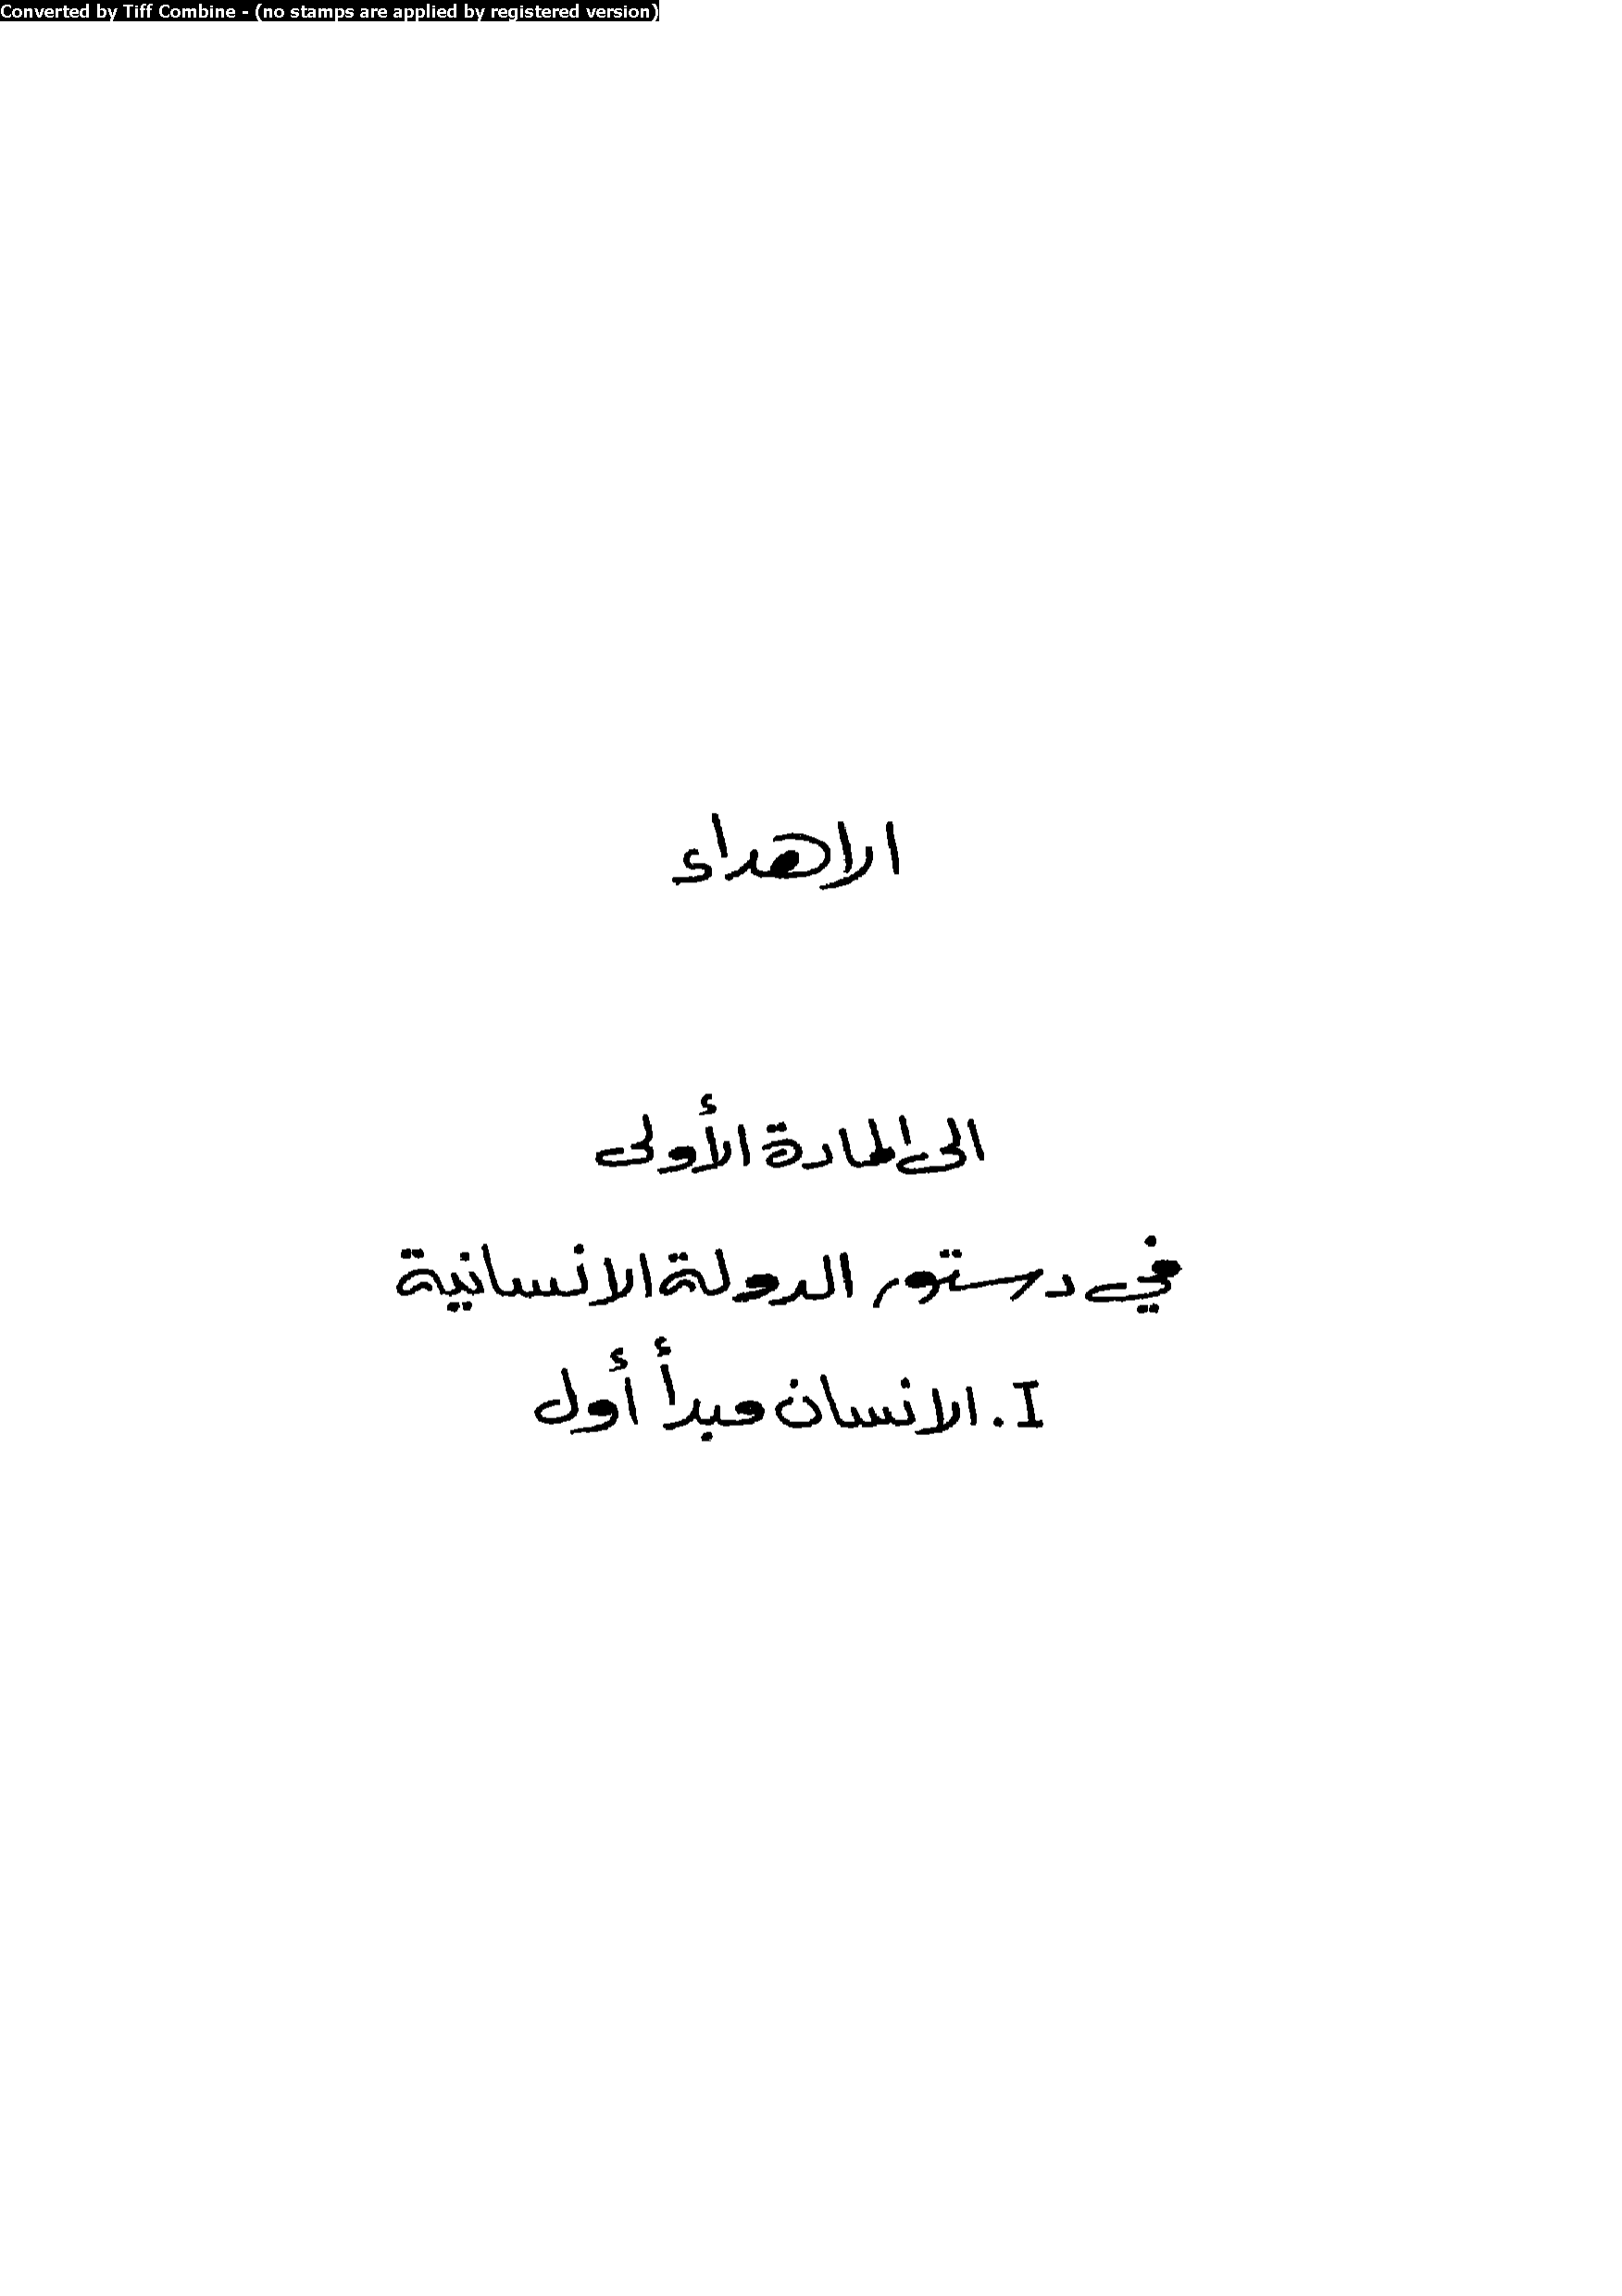 Converted by Tiff Combine - (no stamps are applied by registered version)
الاهداء
الى المادة الأولى
في دستور الدولة الانسانية
I. الانسان مبدأ أول